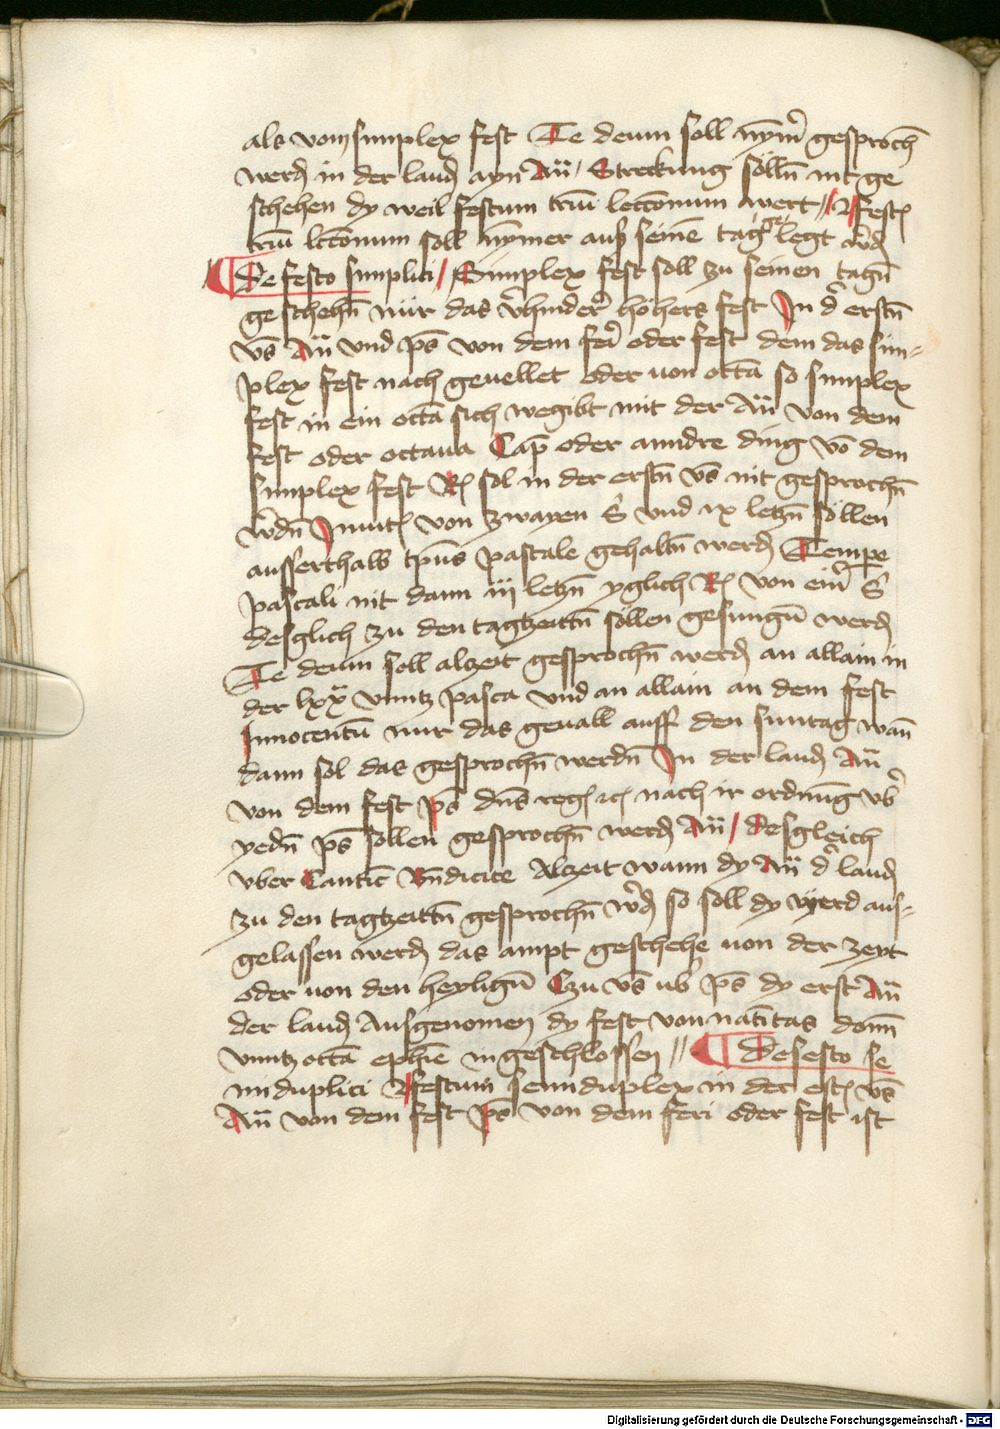 als vom simplex fest Te deum soll nym̄ gesproch̄
werd̄ in der laud̄ ayn Añ / Streckung sölln̄ nit ge
schehen dy weil festum triū lecc̄onum wert // fest
triū lcc̄onum soll nȳmer auß seinē tag gelegt w̄d̄
De festo simplici / Simplex fest soll zu seinen tagn̄
geschehn̄ nür das v̄hinder höhers fest In d̄ erstn̄
vs̄ Añ vnd ps̄ von dem fer̄ oder fest dem das sim-
plex fest nach geuellet oder von octā so simplex
fest in ein octā sich wegibt mit der Añ von dem
fest oder octaua Cap̄ oder anndre ding vō dem
simplex fest R sol in der erstn̄ vs̄ nit gesprochn̄
w̄dn̄ Inuit von zwayen S̄ vnd ix letzn̄ söllen
ausserthalb tpūs pascale gehaltn̄ werd̄ Tempe
pascali nit dann iij letzn̄ yglich R von eim̄ S̄
desglich zu den tagtzeittn̄ söllen gesungn̄ werd̄
Te deum soll alzeit gesprochn̄ werd̄ an allain in
der lxx vnntz pasca vnd an allain an dem fest
Innocentū nur das geuall auff den suntag wañ
dann sol das gesprochn̄ werdn̄ In der laud̄ Añ
von dem fest ps̄ dn̄s reḡ nach ir ordnūg vb̄
yedn̄ ps̄ sollen gesprochn̄ werd̄ Añ / desgleich
vber Cantic̄ Bn̄dicite Alzeit wann dy Añ d̄ laud̄
zu den tagtzeittn̄ gesprochn̄ w̄d̄ so soll dy vyerd aus-
gelassen werd̄ das ampt geschehe von der zeyt
oder von den heylign̄ Czu vs̄ vb̄ ps̄ dy erst Añ
der laud̄ Ausgenomen dy fest von natītas domī
vnntz octā ephīe in geschlossen // De festo se
mi duplici festum semiduplex in der erst vs̄
Añ von dem fest ps̄ von dem feri oder fest ist
Digitalisierung gefördert durch die Deutsche Forschungsgemeinschaft - DFG